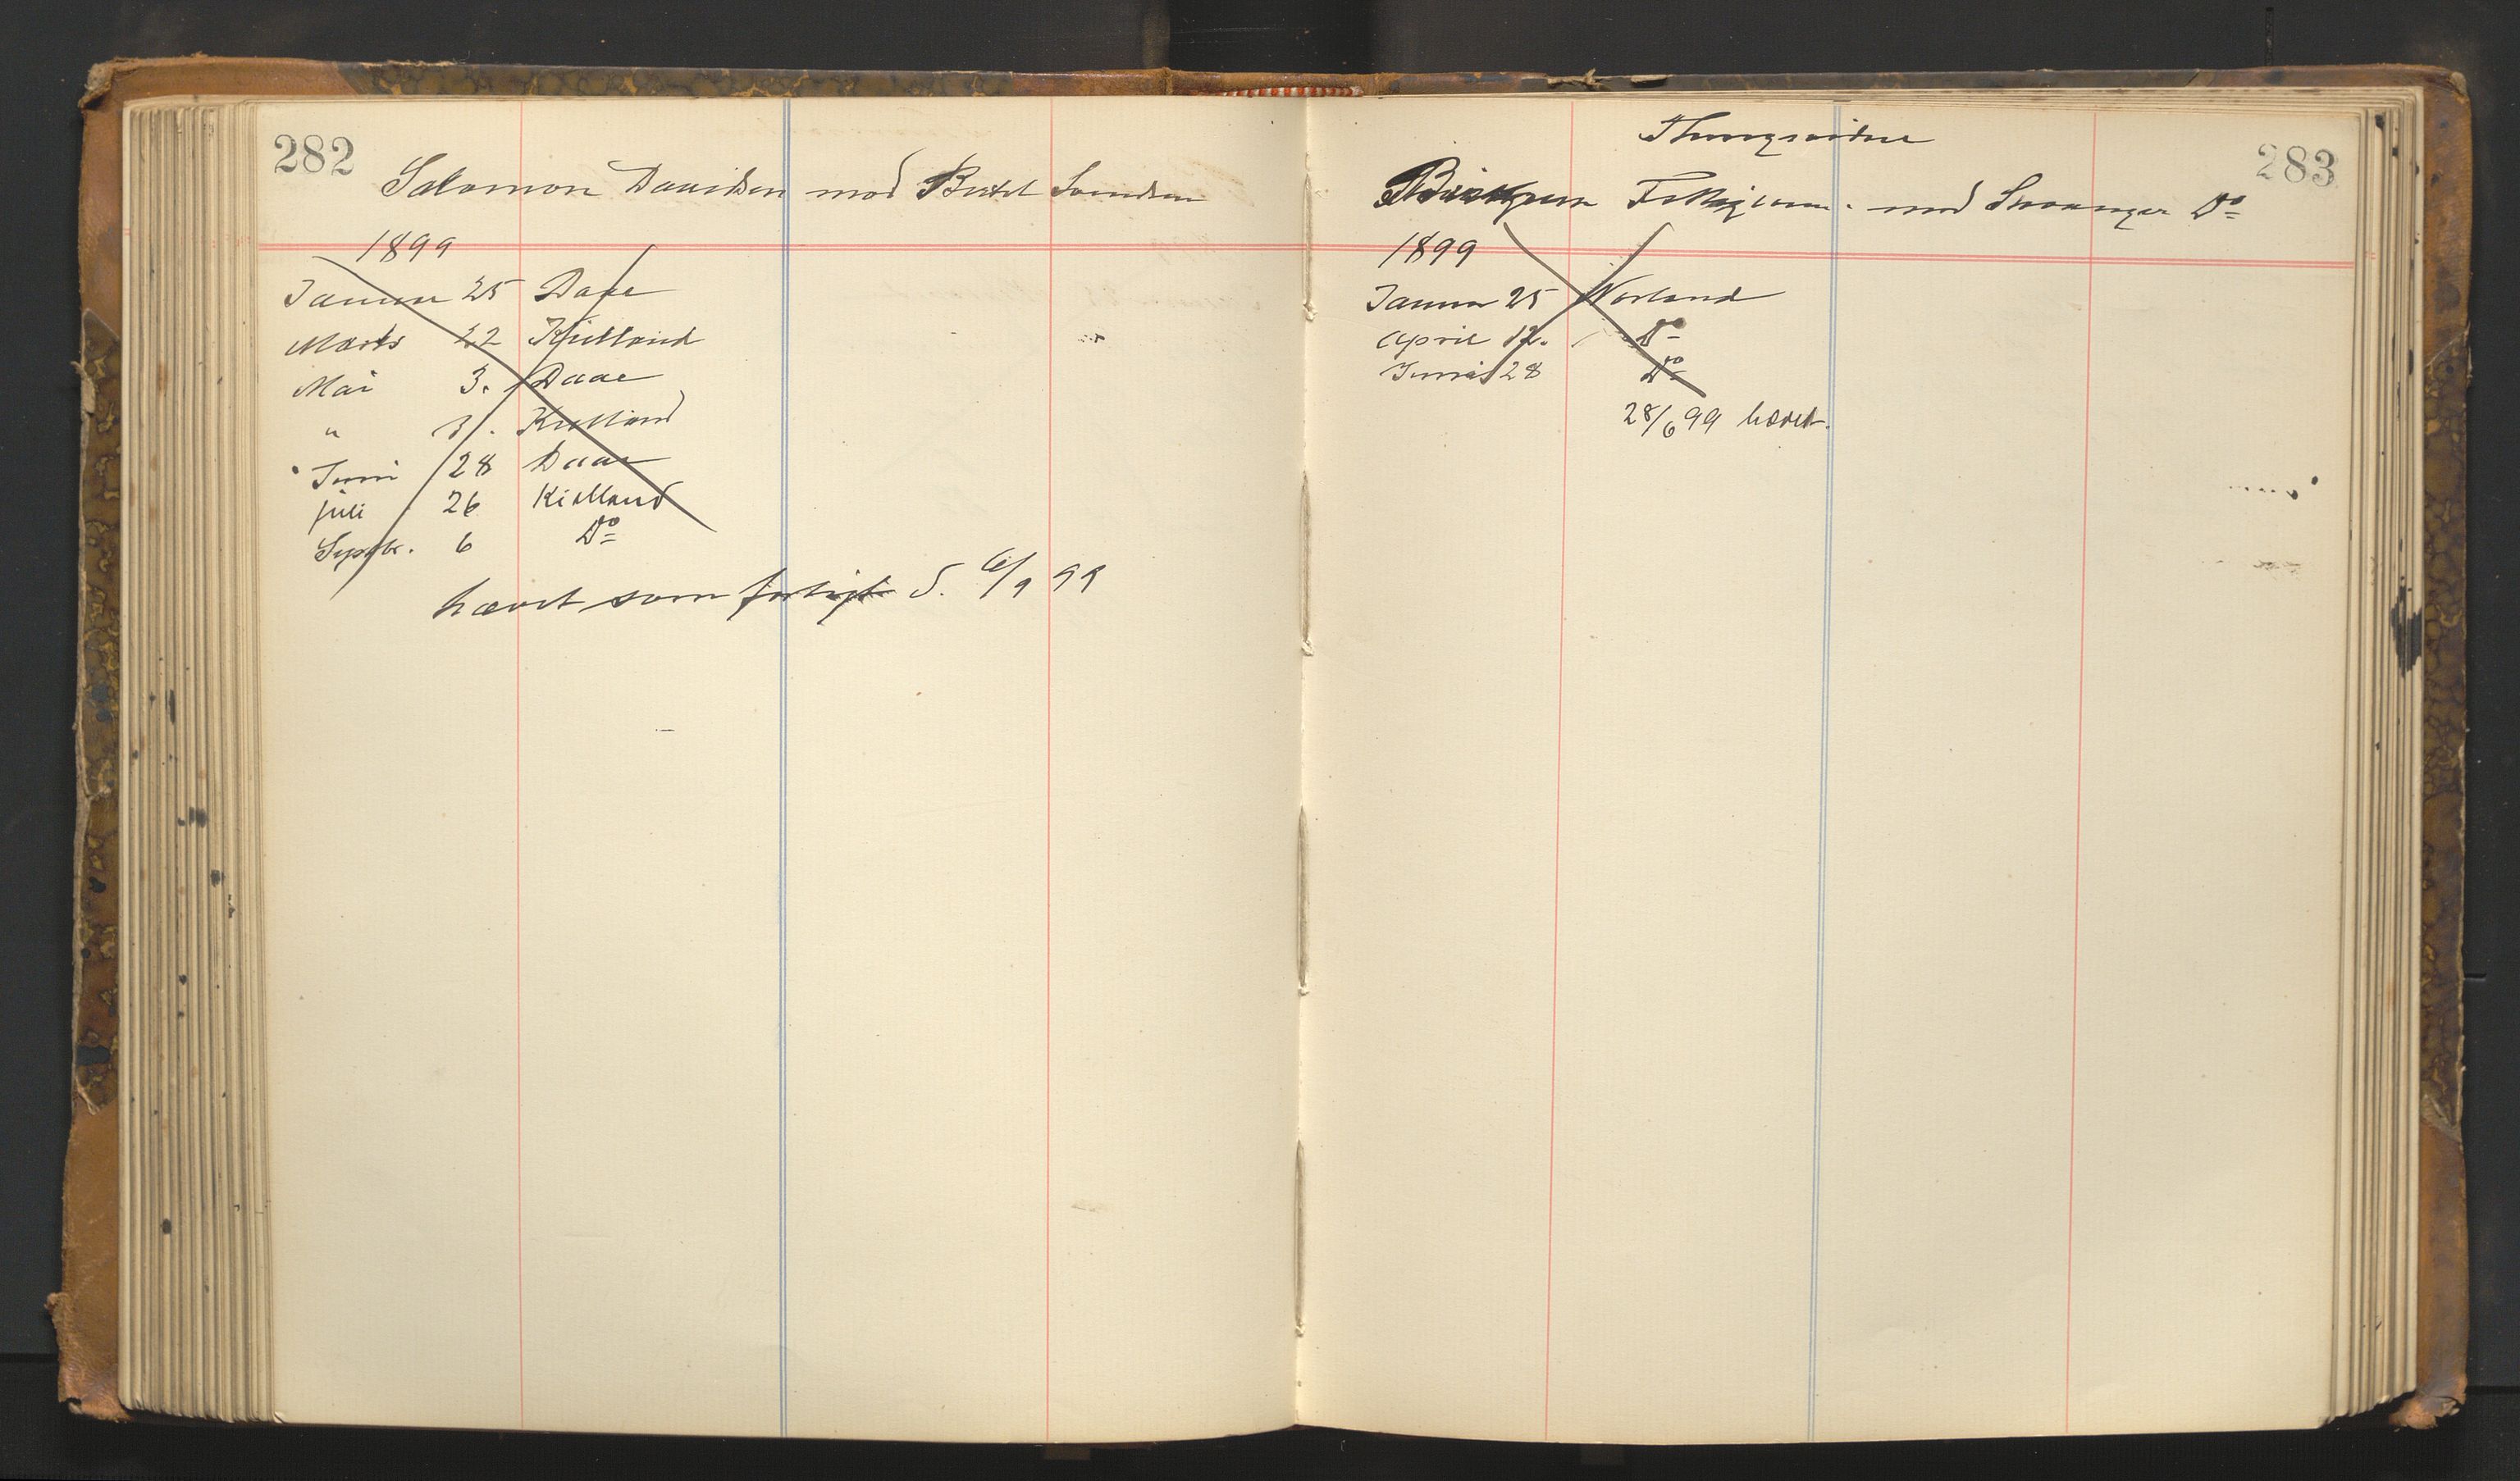 282
Salomon Davidsen mod Bertel Svendsen
1899
Januar 25 Daae
Marts 22 Kielland
Mai 3. Daae
" 31. Kielland
Juni 28 Daae
juli 26 Kielland
Septbr. 6 Do
hævet som forligt d. 6/9 99
283
Thingsvidne
Fattigcom. mod Stavanger Do
1899
Januar 25 Norland
April 12. Do
Juni 28 Do
28/6 99 hævet.